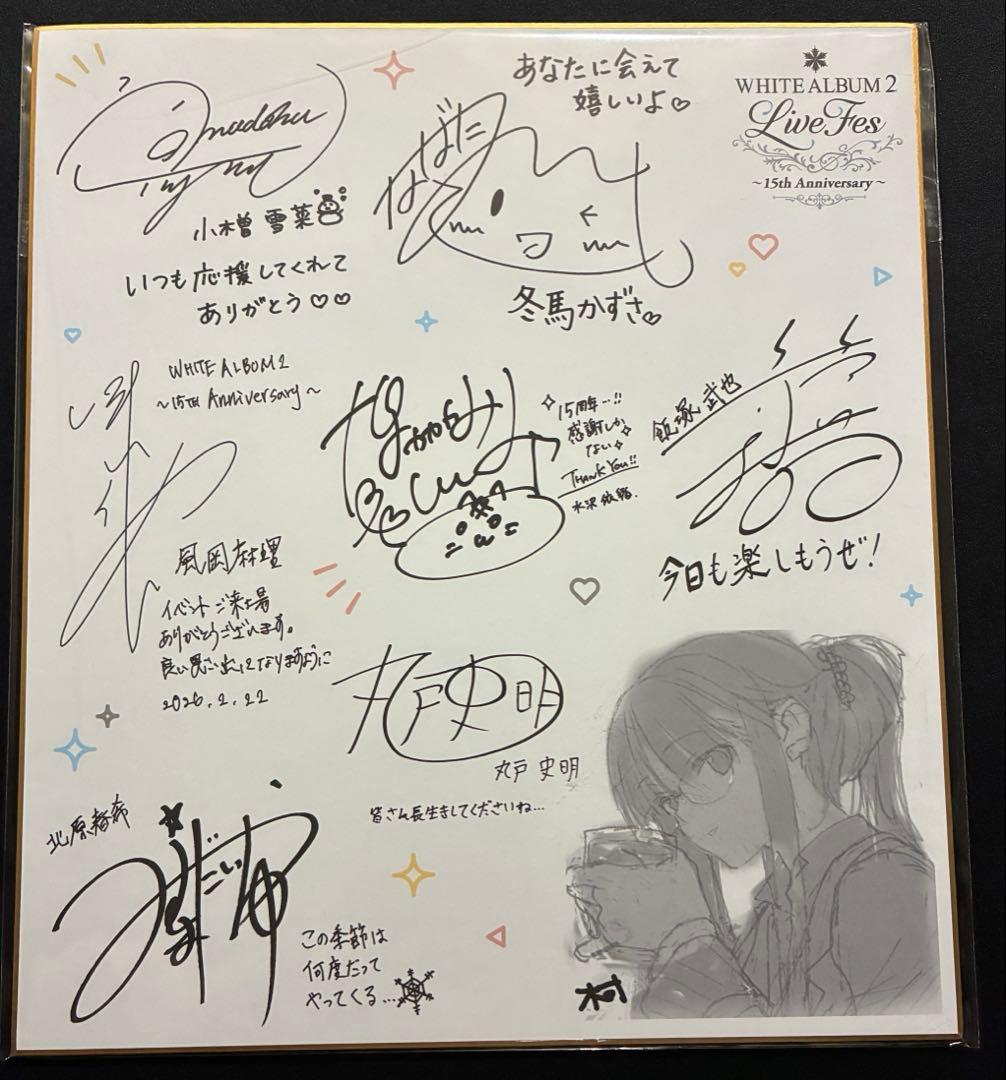 あなたに会えて
嬉しいよ♡
WHITE ALBUM 2
Live Fes
~15th Anniversary~
小木曽 雪菜
いつも応援してくれて
ありがとう♡♡
冬馬かずさ♡
WHITE ALBUM 2
~15TH Anniversary~
15周年…!!
感謝しか
ない
THANK YOU!!
水沢 依緒.
飯塚 武也
今日も楽しもうぜ!
風岡麻理
イベントご来場
ありがとうございます。
良い思い出になりますように
2026.2.22
丸戸史明
丸戸 史明
皆さん長生きしてくださいね…
北原春希
この季節は
何度だって
やってくる…